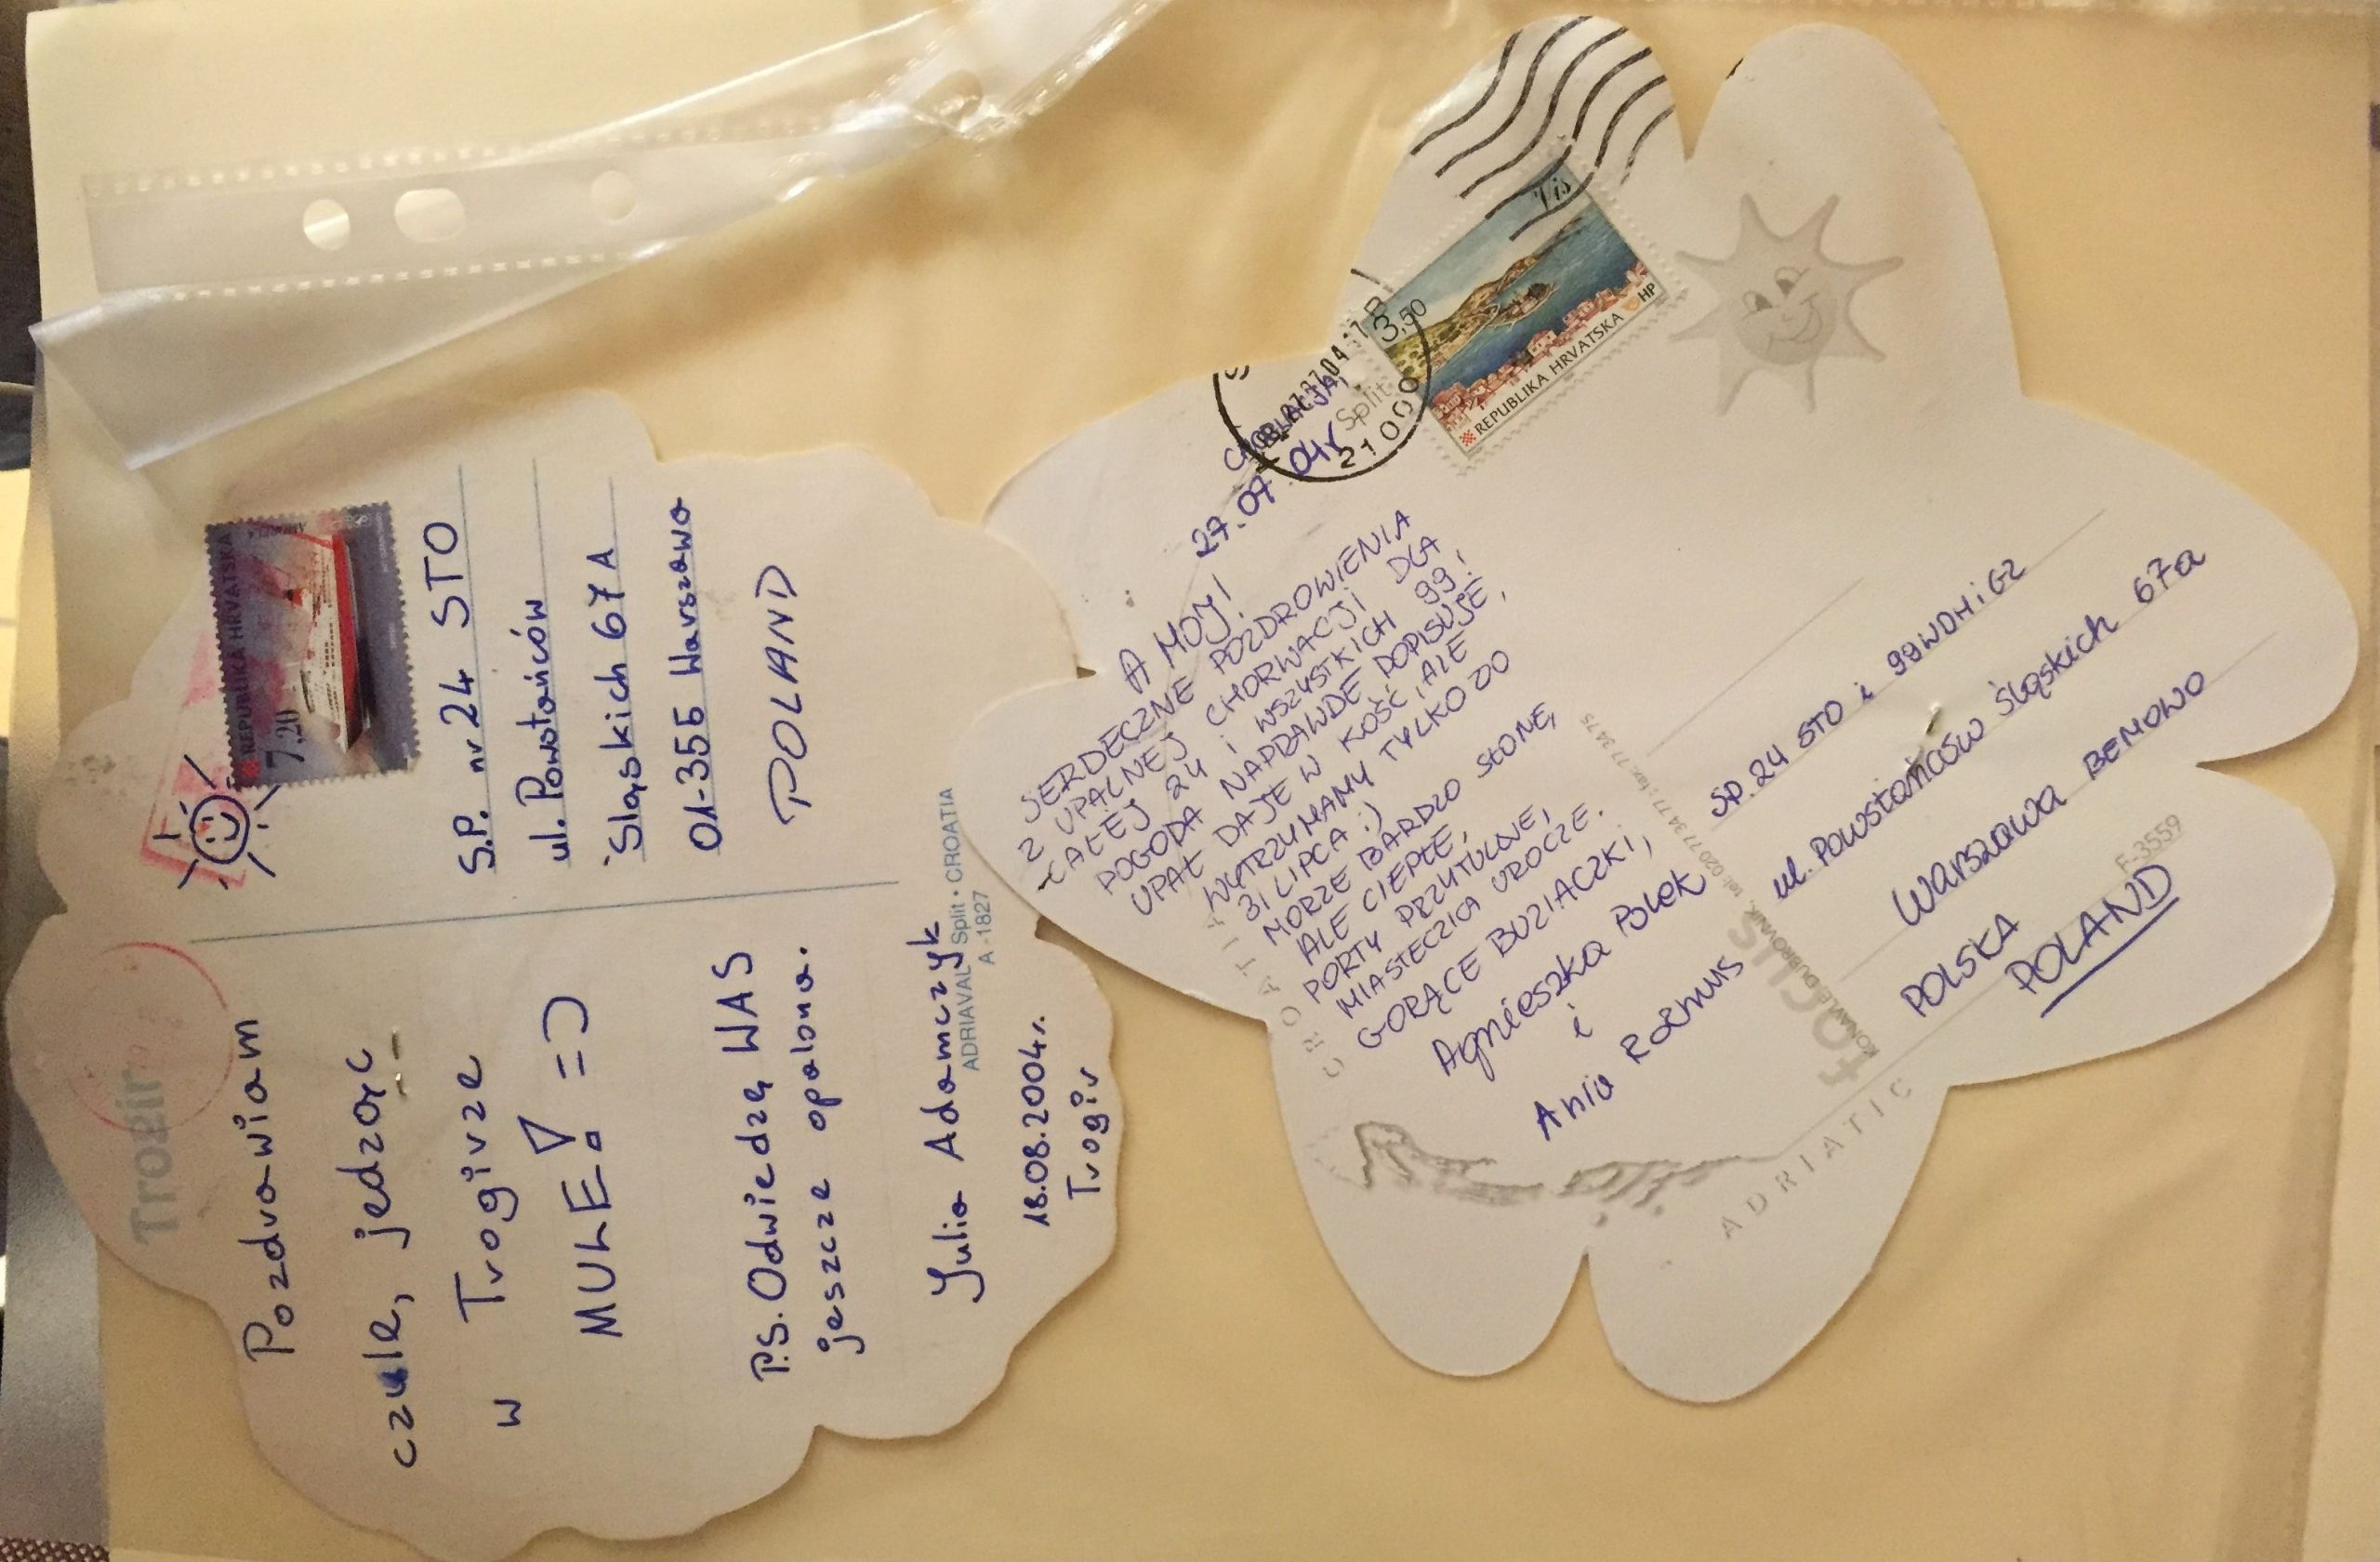 Trogir
Pozdrawiam
czule, jedząc
w Trogirze
MULE! =)
P.S. Odwiedzę WAS
jeszcze opalona.
Julia Adamczyk
18.08.2004r.
Trogir
ADRIAVAL Split • CROATIA
A -1827
REPUBLIKA HRVATSKA
7.20
S.P. nr 24 STO
ul. Powstańców
Śląskich 67A
01-355 Warszawa
POLAND
27.07.04r
AHOY!
SERDECZNE POZDROWIENIA
Z UPALNEJ CHORWACJI DLA
CAŁEJ 24 I WSZYSTKICH 99!
POGODA NAPRAWDĘ DOPISUJE,
UPAŁ DAJE W KOŚĆ, ALE
WYTRZYMAMY TYLKO DO
31 LIPCA :)
MORZE BARDZO SŁONE,
ALE CIEPŁE,
PORTY PRZYTULNE,
MIASTECZKA UROCZE.
GORĄCE BUZIACZKI,
Agnieszka Polek
i
Ania Rozmus
CROATIA
ADRIATIC
focus
KONAVLE, DUBROVNIK, tel: 020 773 477; fax: 773 475
Split
21000
3,50
Vis
REPUBLIKA HRVATSKA
HP
SP. 24 STO i 99WDHiGZ
ul. Powstańców Śląskich 67a
Warszawa BEMOWO
POLSKA
POLAND
F-3559